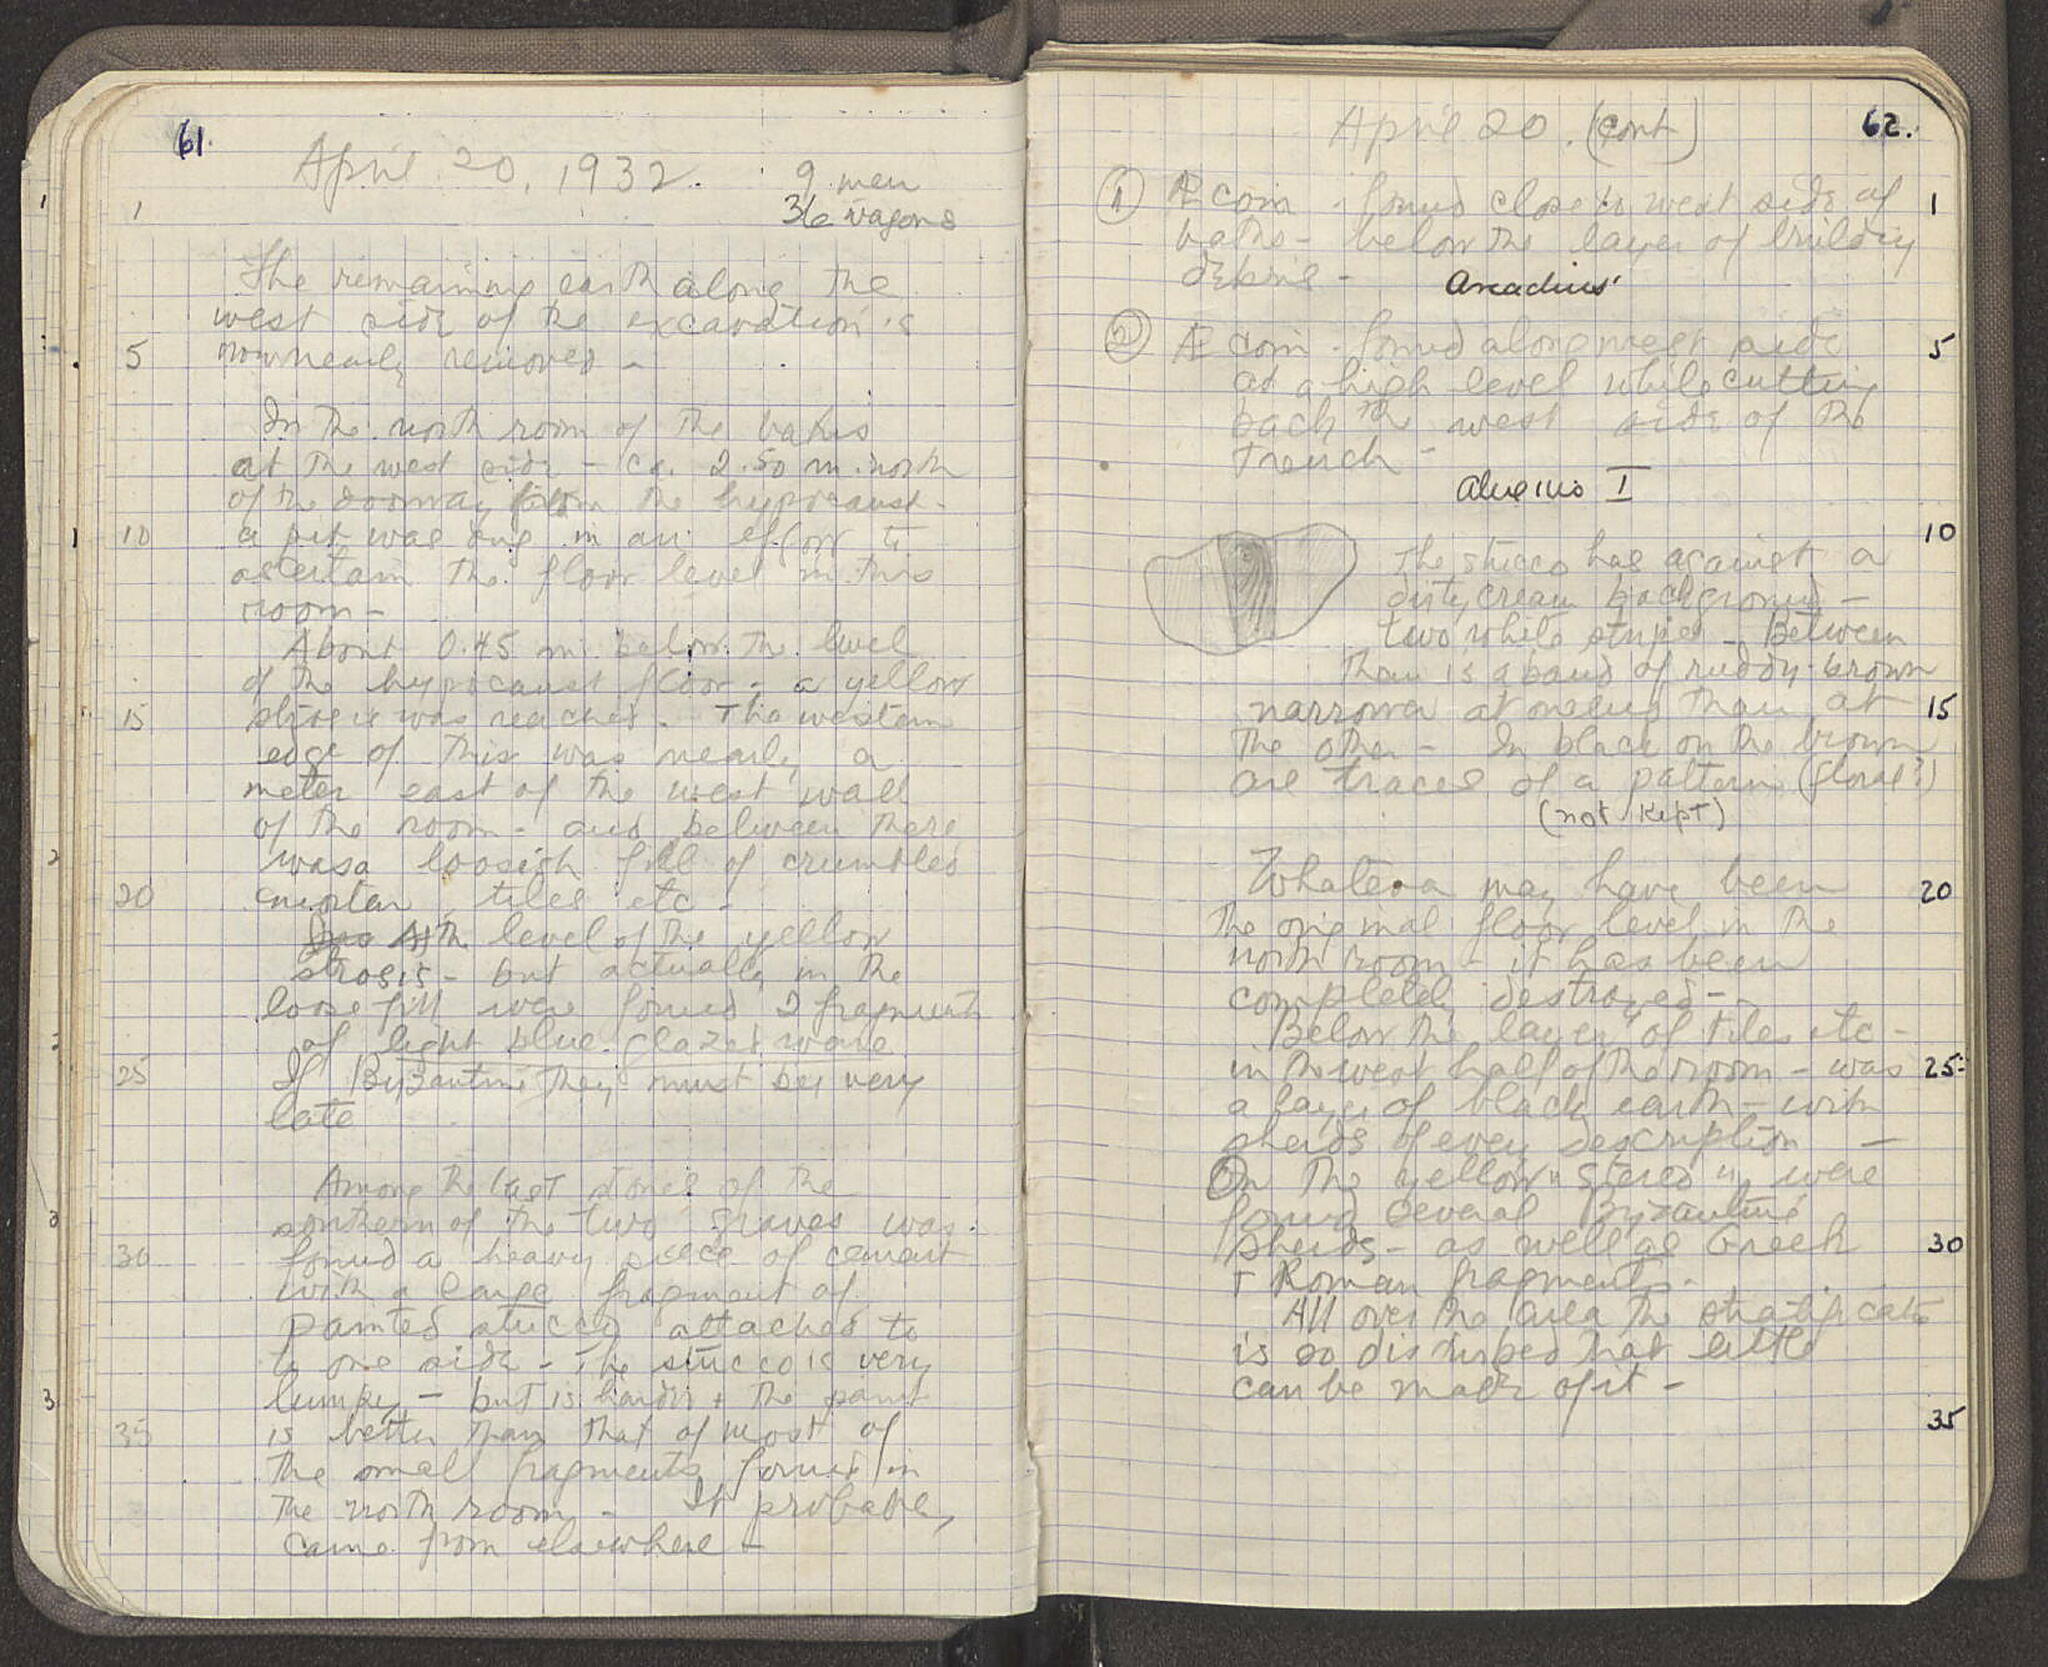 61.
April 20, 1932.
9 men
36 wagons
1
The remaining earth along the
west side of the excavation is
5
now nearly removed -
In the north room of the baths
at the west side - ca. 2.50 m. north
of the doorway from the hypocaust -
10
a pit was dug in an effort to
ascertain the floor level in this
room -
About 0.45 m below the level
of the hypocaust floor - a yellow
15
strosis was reached. The western
edge of this was nearly a
meter east of the west wall
of the room - and between there
was a loosish fill of crumbled
20
mortar, tiles etc -
At the level of the yellow
strosis - but actually in the
loose fill were found 2 fragments
of light blue glazed ware
25
If Byzantine they must be very
late
Among the last stones of the
southern of the two graves was
30
found a heavy piece of cement
with a large fragment of
painted stucco attached to
to one side - The stucco is very
lumpy - but is harder + the paint
35
is better than that of most of
the small fragments found in
the north room - It probably
came from elsewhere -
62.
April 20. (cont)
1
① Æ coin - found close to west side of
baths - below the layer of building
debris -
Arcadius
② Æ coin - found along west side
5
at a high level while cutting
back the west side of the
trench -
I
10
The stucco has against a
dirty cream background -
two white stripes - Between
them is a band of ruddy-brown
15
narrower at one end than at
the other - In black on the brown
are traces of a pattern (floral?)
(not kept)
Whatever may have been
20
the original floor level in the
north room - it has been
completely destroyed -
Below the layer of tiles etc -
in the west half of the room - was
25
a layer of black earth - with
sherds of every description -
On the yellow "stereo" were
found several Byzantine
sherds - as well as Greek
30
+ Roman fragments.
All over the area the
is so disturbed that little
can be made of it -
35